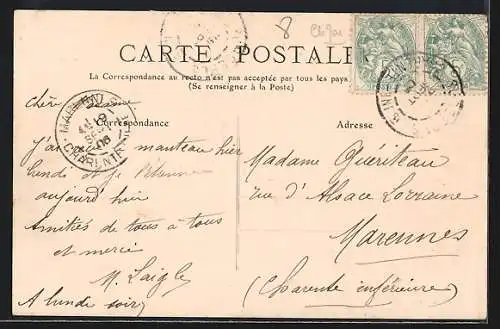 8
CARTE POSTALE
La Correspondance au recto n'est pas acceptée par tous les pays
(Se renseigner à la Poste)
Correspondance
Adresse
chère
J'ai manteau hier
lundi et je
aujourd hier
Amitiés de tous à tous
et merci
M. Laigle
A lundi soir
Madame Guériteau
rue d'Alsace Lorraine
Marennes
(Charente inférieure)